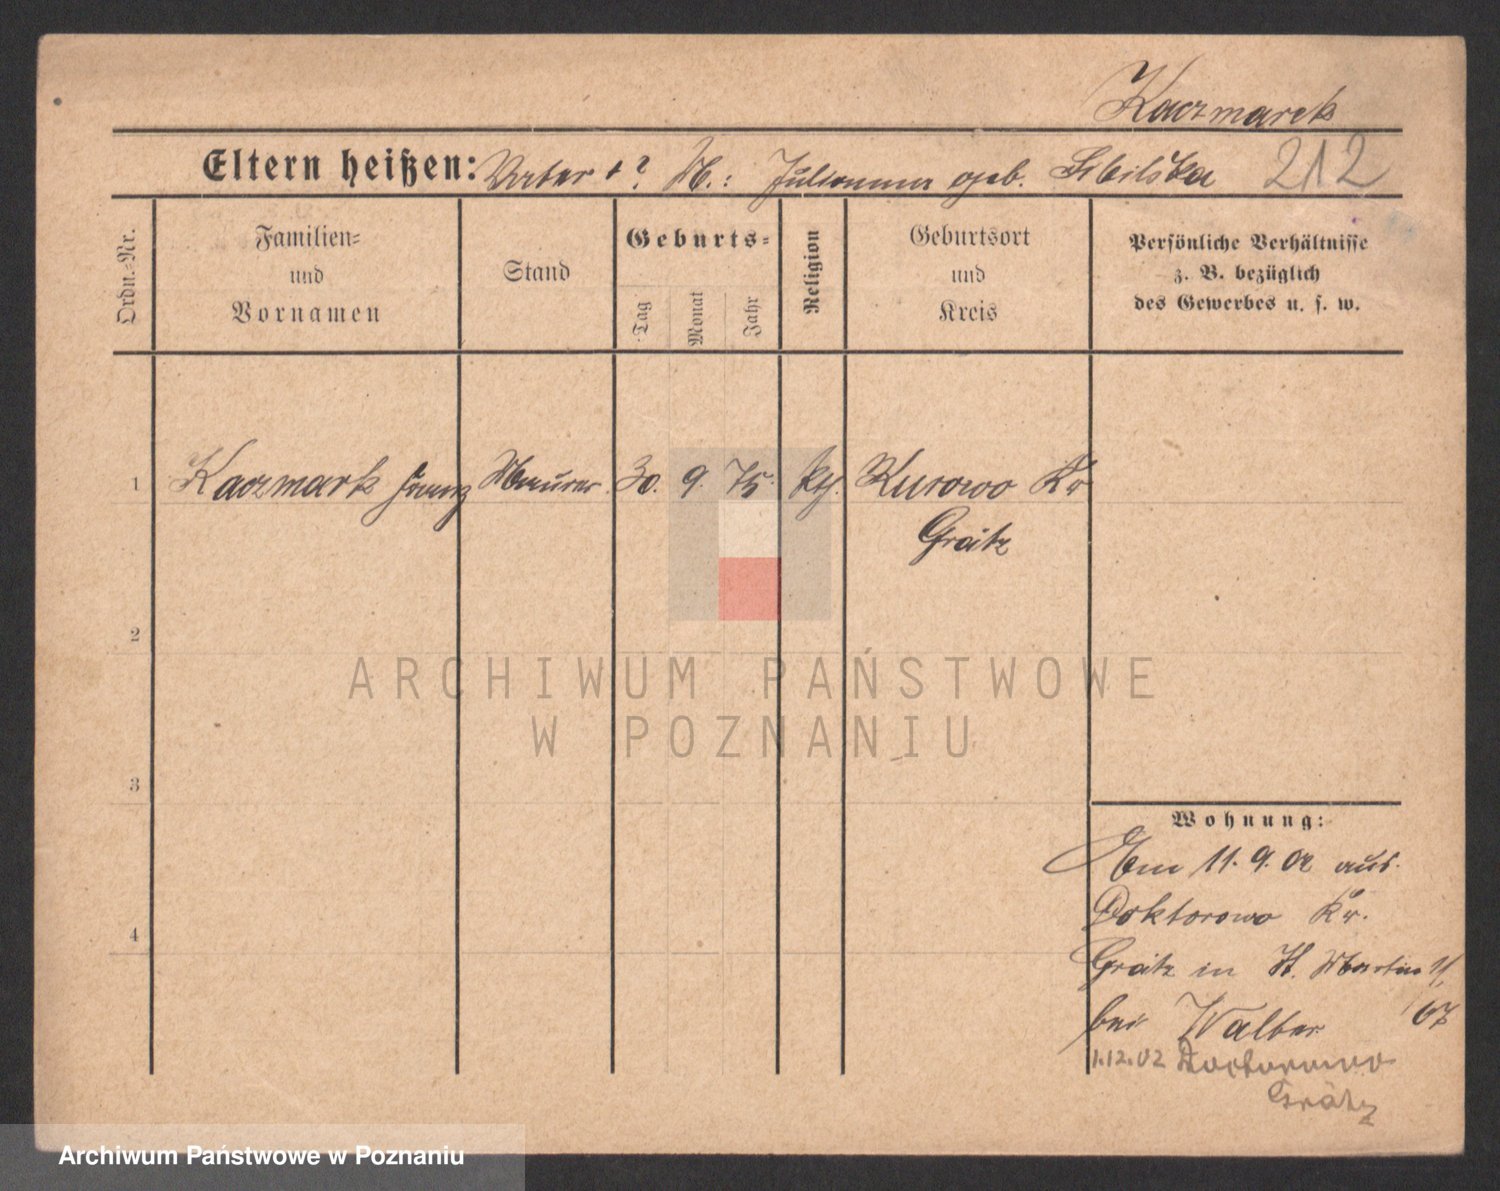 Kaczmarek
Eltern heißen: Vater †? M.: Julianna geb. Sibilska 212
Ordn.-Nr.
Familien- und Vornamen
Stand
Geburts-
Tag
Monat
Jahr
Religion
Geburtsort und Kreis
Persönliche Verhältnisse
z. B. bezüglich
des Gewerbes u. s. w.
1 Kaczmarek Franz Maurer 30. 9. 75. kth. Kurowo Kr
Grätz
2
ARCHIWUM PAŃSTWOWE
W POZNANIU
3
Wohnung:
Am 11.9.02 aus
Doktorowo Kr.
Grätz in St. Martin
bei Walter 67
4
1.12.02 Doctorowo
Grätz
Archiwum Państwowe w Poznaniu